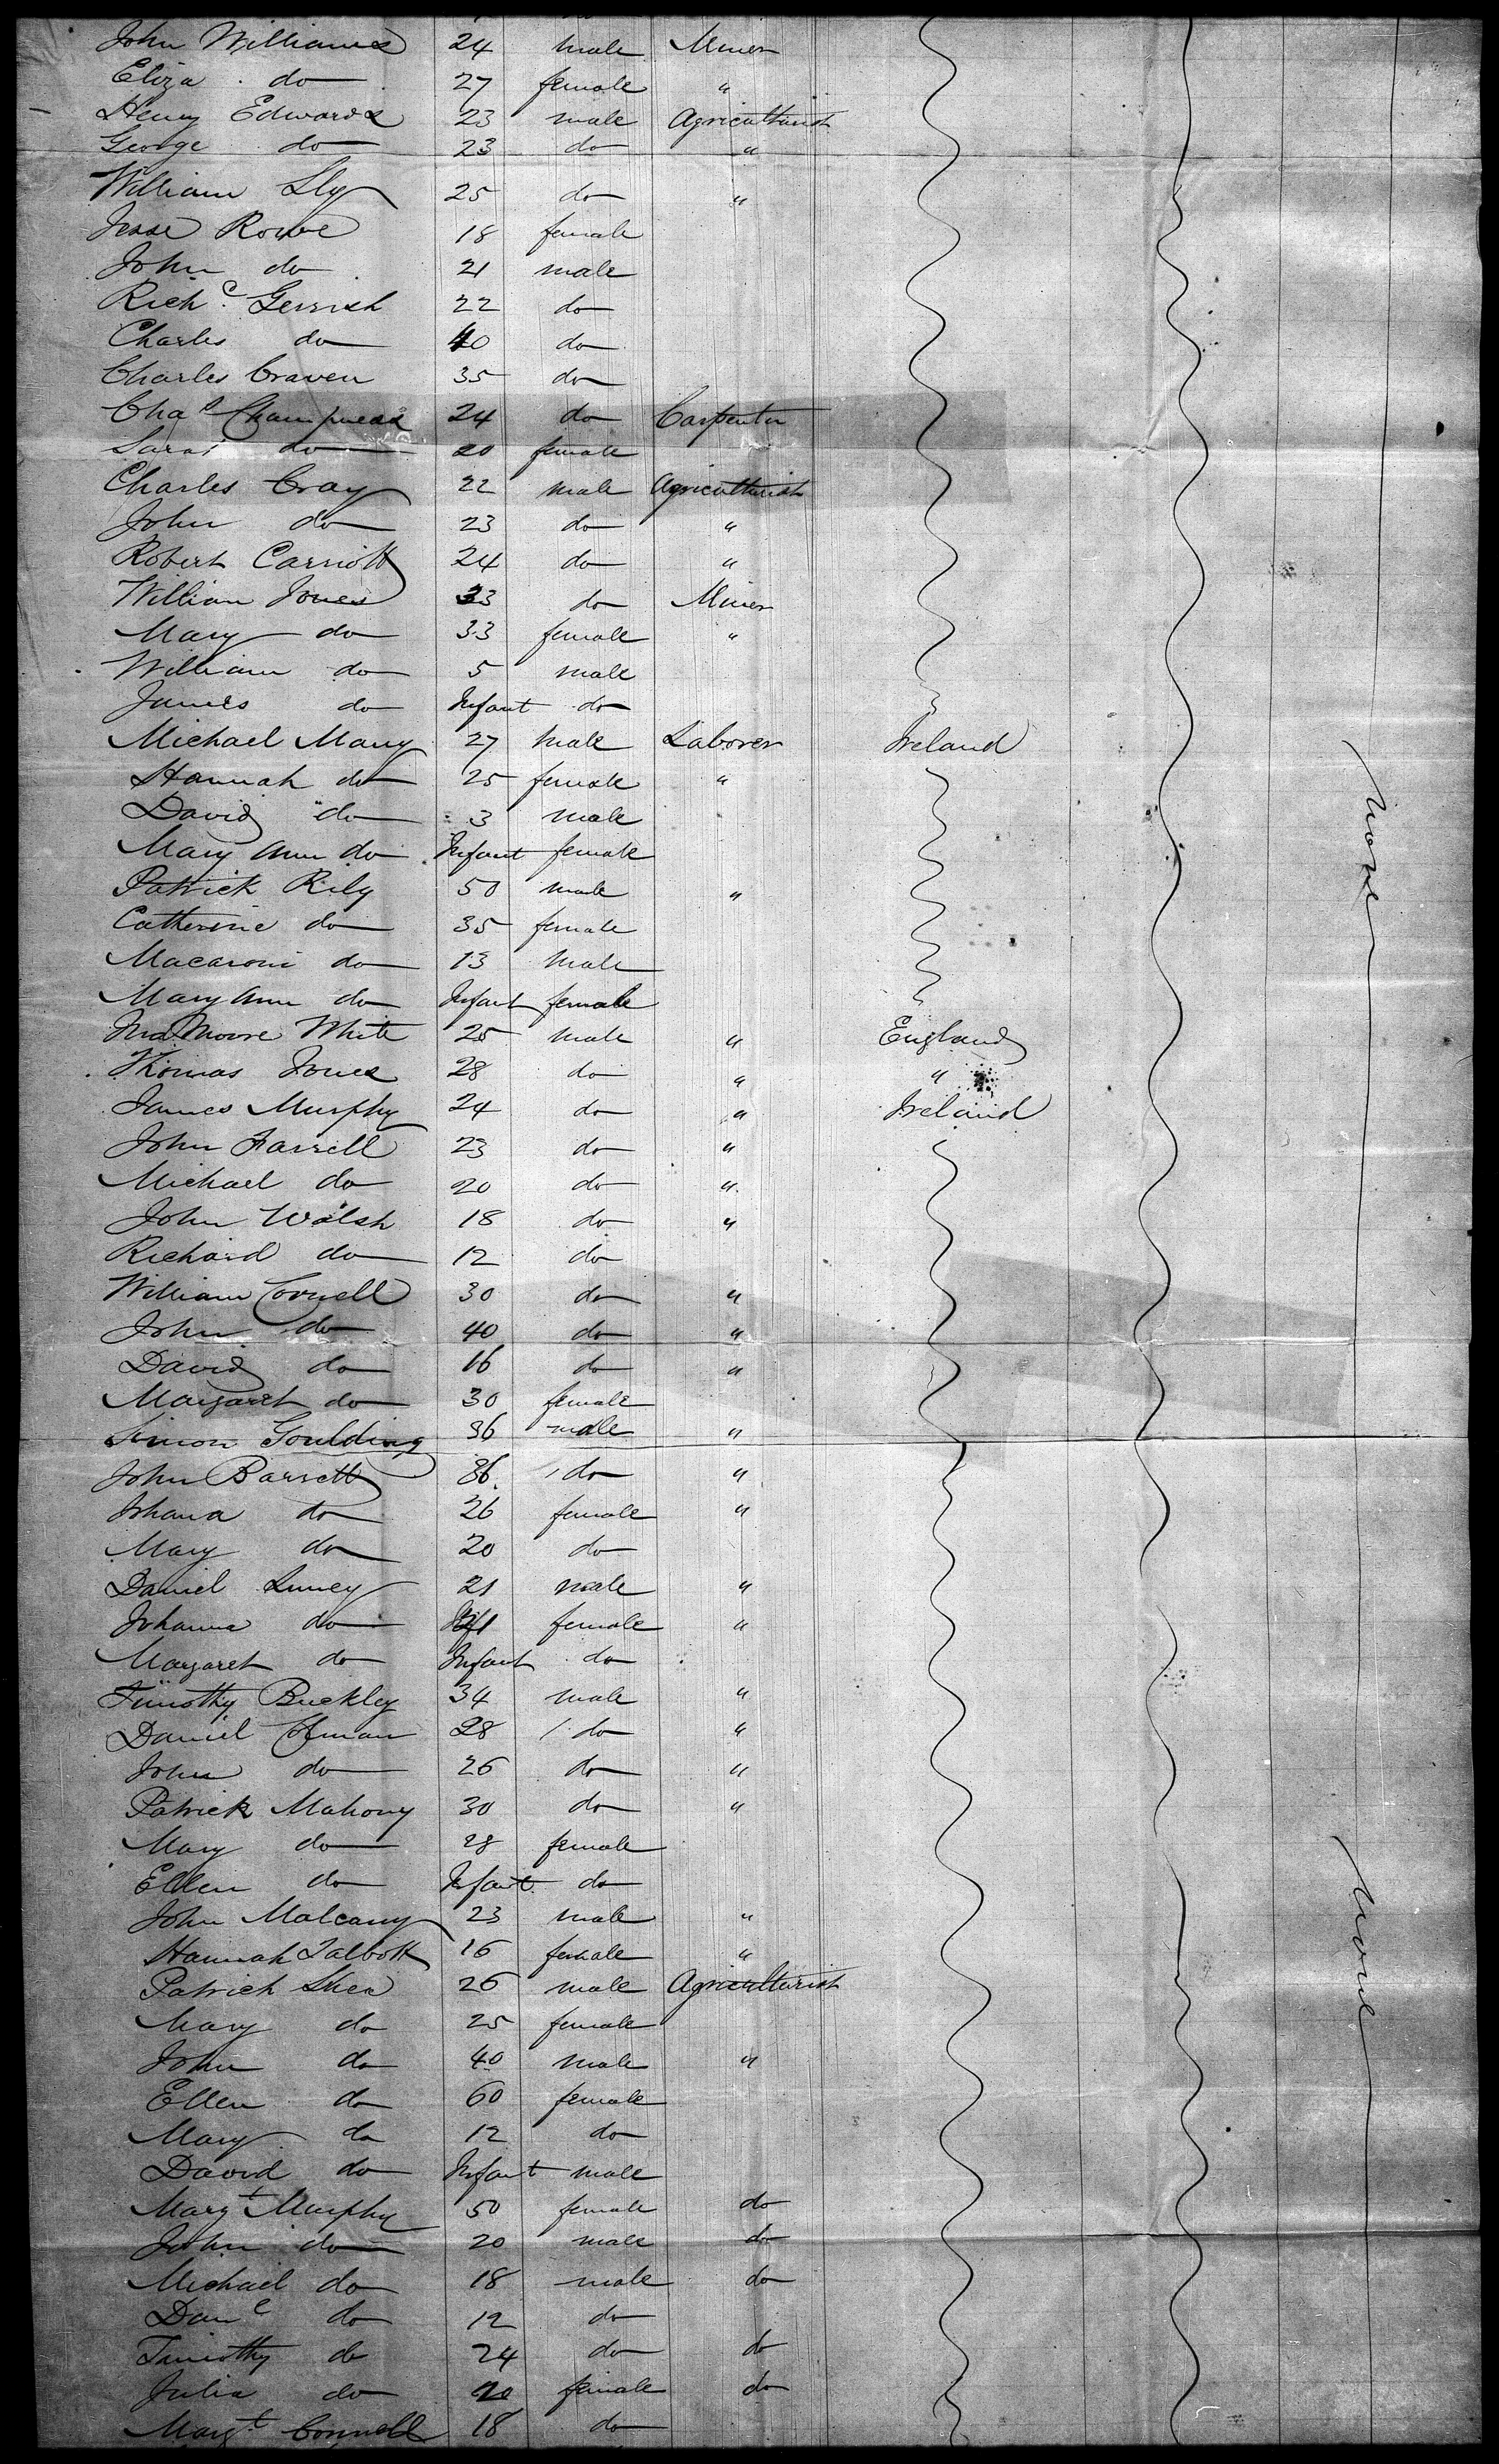 John Williams 24 male Miner
Eliza do 27 female "
Henry Edwards 23 male Agriculturist
George do 23 do "
William Sly 25 do "
Jesse Rowe 18 female
John do 21 male
Rich^d Gerrish 22 do
Charles do 40 do
Charles Craven 35 do
Cha^s Champness 24 do Carpenter
Sarah do 20 female
Charles Cray 22 male Agriculturist
John do 23 do "
Robert Carriott 24 do "
William Jones 33 do Miner
Mary do 33 female "
William do 5 male
James do Infant do
Michael Many 27 male Laborer Ireland
Hannah do 25 female "
David do 3 male
Mary Ann do Infant female None
Patrick Rily 50 male "
Catherine do 35 female
Macaroni do 13 male
Mary Ann do Infant female
Moore White 25 male " England
Thomas Jones 28 do " "
James Murphy 24 do " Ireland
John Farrell 23 do "
Michael do 20 do "
John Walsh 18 do "
Richard do 12 do
William Connell 30 do "
John do 40 do "
David do 16 do "
Margaret do 30 female
Simon Goulding 36 male "
John Barrett 36 do "
Johana do 26 female "
Mary do 20 do
Daniel Luney 21 male "
Johanna do 21 female "
Margaret do Infant do
Timothy Buckley 34 male "
Daniel 28 do "
John do 26 do "
Patrick Mahony 30 do "
Mary do 28 female
Ellen do Infant do
John Malcamy 23 male "
Hannah Talbott 16 female " None
Patrick Shea 26 male Agriculturist
Mary do 25 female
John do 40 male "
Ellen do 60 female
Mary do 12 do
David do Infant male
Marg^t Murphy 50 female do
John do 20 male do
Michael do 18 male do
Dan^l do 12 do
Timothy do 24 do do
Julia do 20 female do
Marg^t Connell 18 do